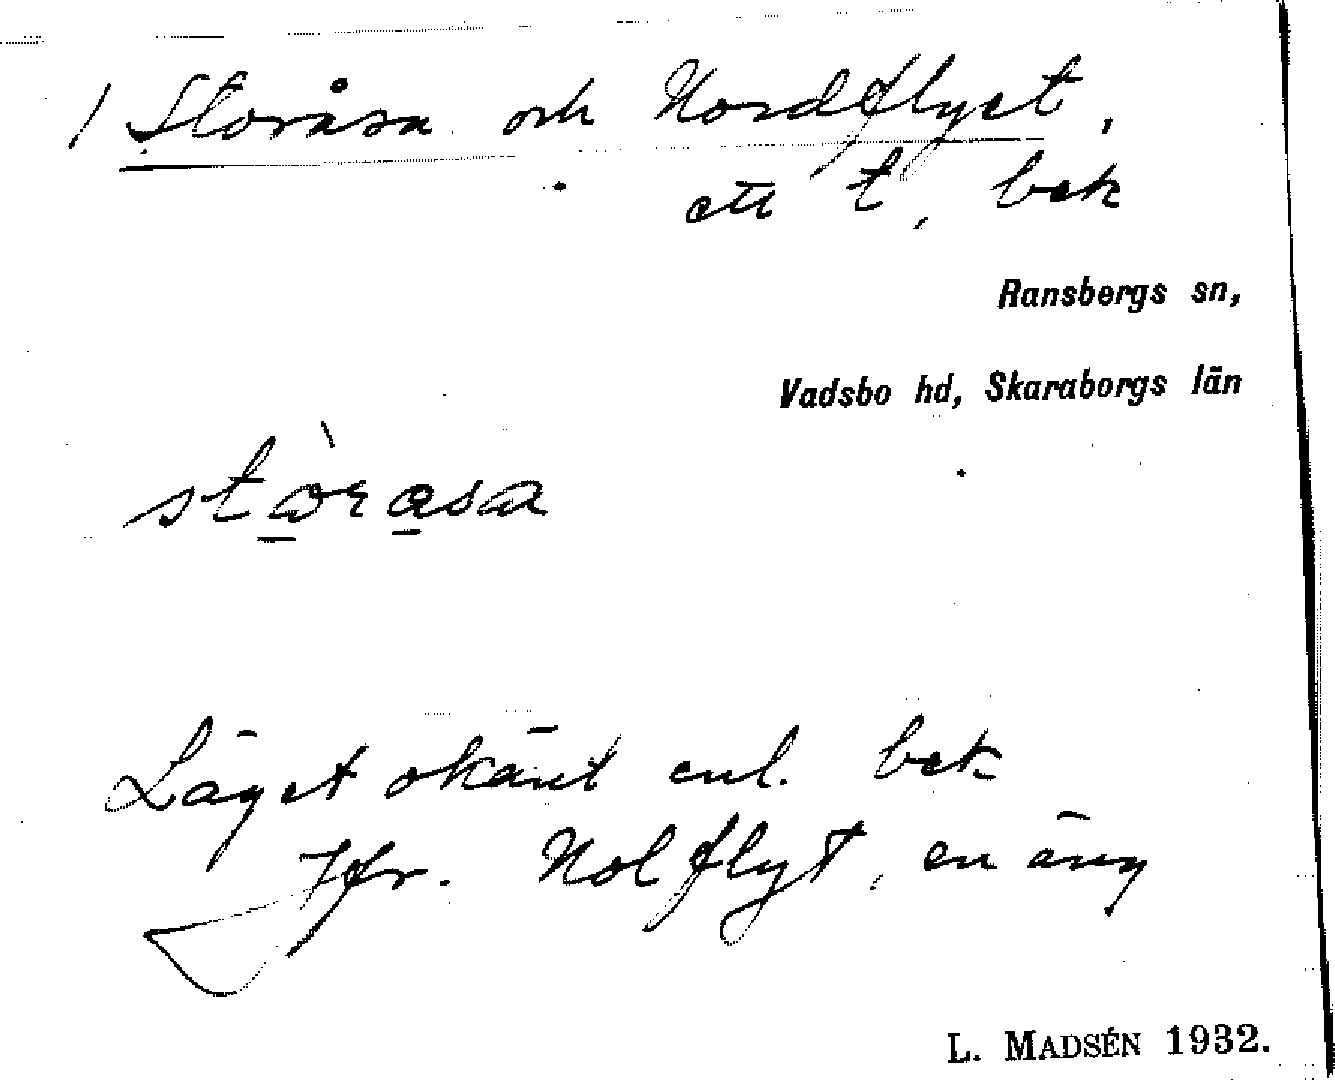 / Storåsa och Nordflyet,
ett t, bek
Ransbergs sn,
Vadsbo hd, Skaraborgs län
stòrasa
Läget okänt enl. bek
Jfr. Nolflyt, en äng
L. MADSÉN 1932.